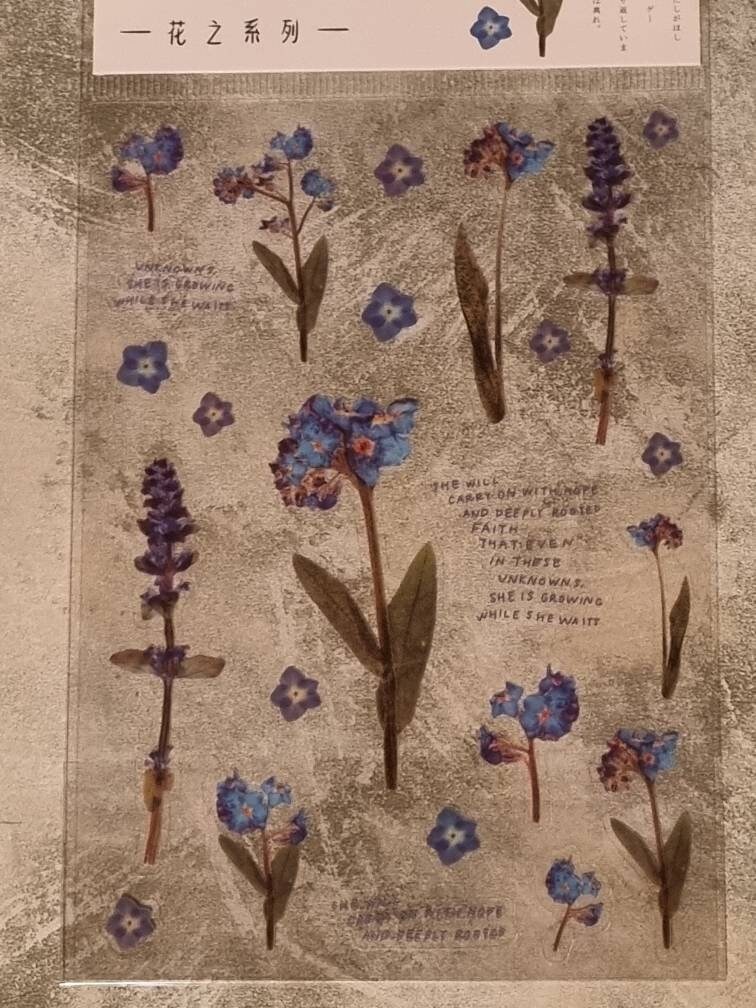 — 花之系列 —
UNKNOWNS,
SHE IS GROWING
WHILE SHE WAITS
SHE WILL
CARRY ON WITH HOPE
AND DEEPLY ROOTED
FAITH
THAT EVEN
IN THESE
UNKNOWNS,
SHE IS GROWING
WHILE SHE WAITS
SHE WILL
CARRY ON WITH HOPE
AND DEEPLY ROOTED